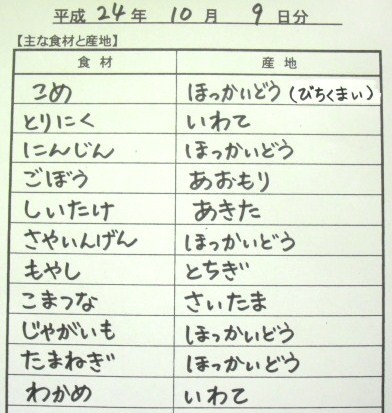 平成24年10月9日分
【主な食材と産地】
食材 産地
こめ ほっかいどう(びちくまい)
とりにく いわて
にんじん ほっかいどう
ごぼう あおもり
しいたけ あきた
さやいんげん ほっかいどう
もやし とちぎ
こまつな さいたま
じゃがいも ほっかいどう
たまねぎ ほっかいどう
わかめ いわて